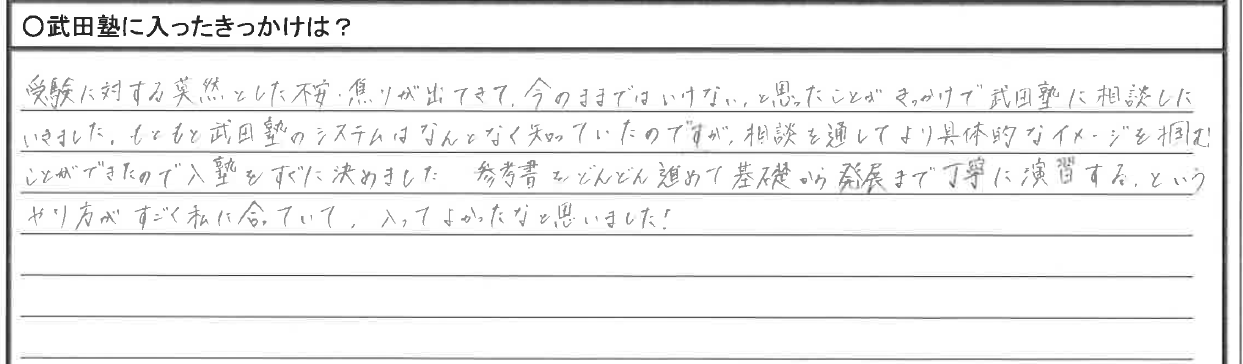 〇武田塾に入ったきっかけは？
受験に対する莫然とした不安・焦りが出てきて、今のままではいけない、と思ったことがきっかけで武田塾に相談した
いきました。もともと武田塾のシステムはなんとなく知っていたのですが、相談を通してより具体的なイメージを掴む
ことができたので入塾をすぐに決めました 参考書をどんどん進めて基礎から発展まで丁寧に演習する、という
やり方がすごく私に合っていて、入ってよかったなと思いました！